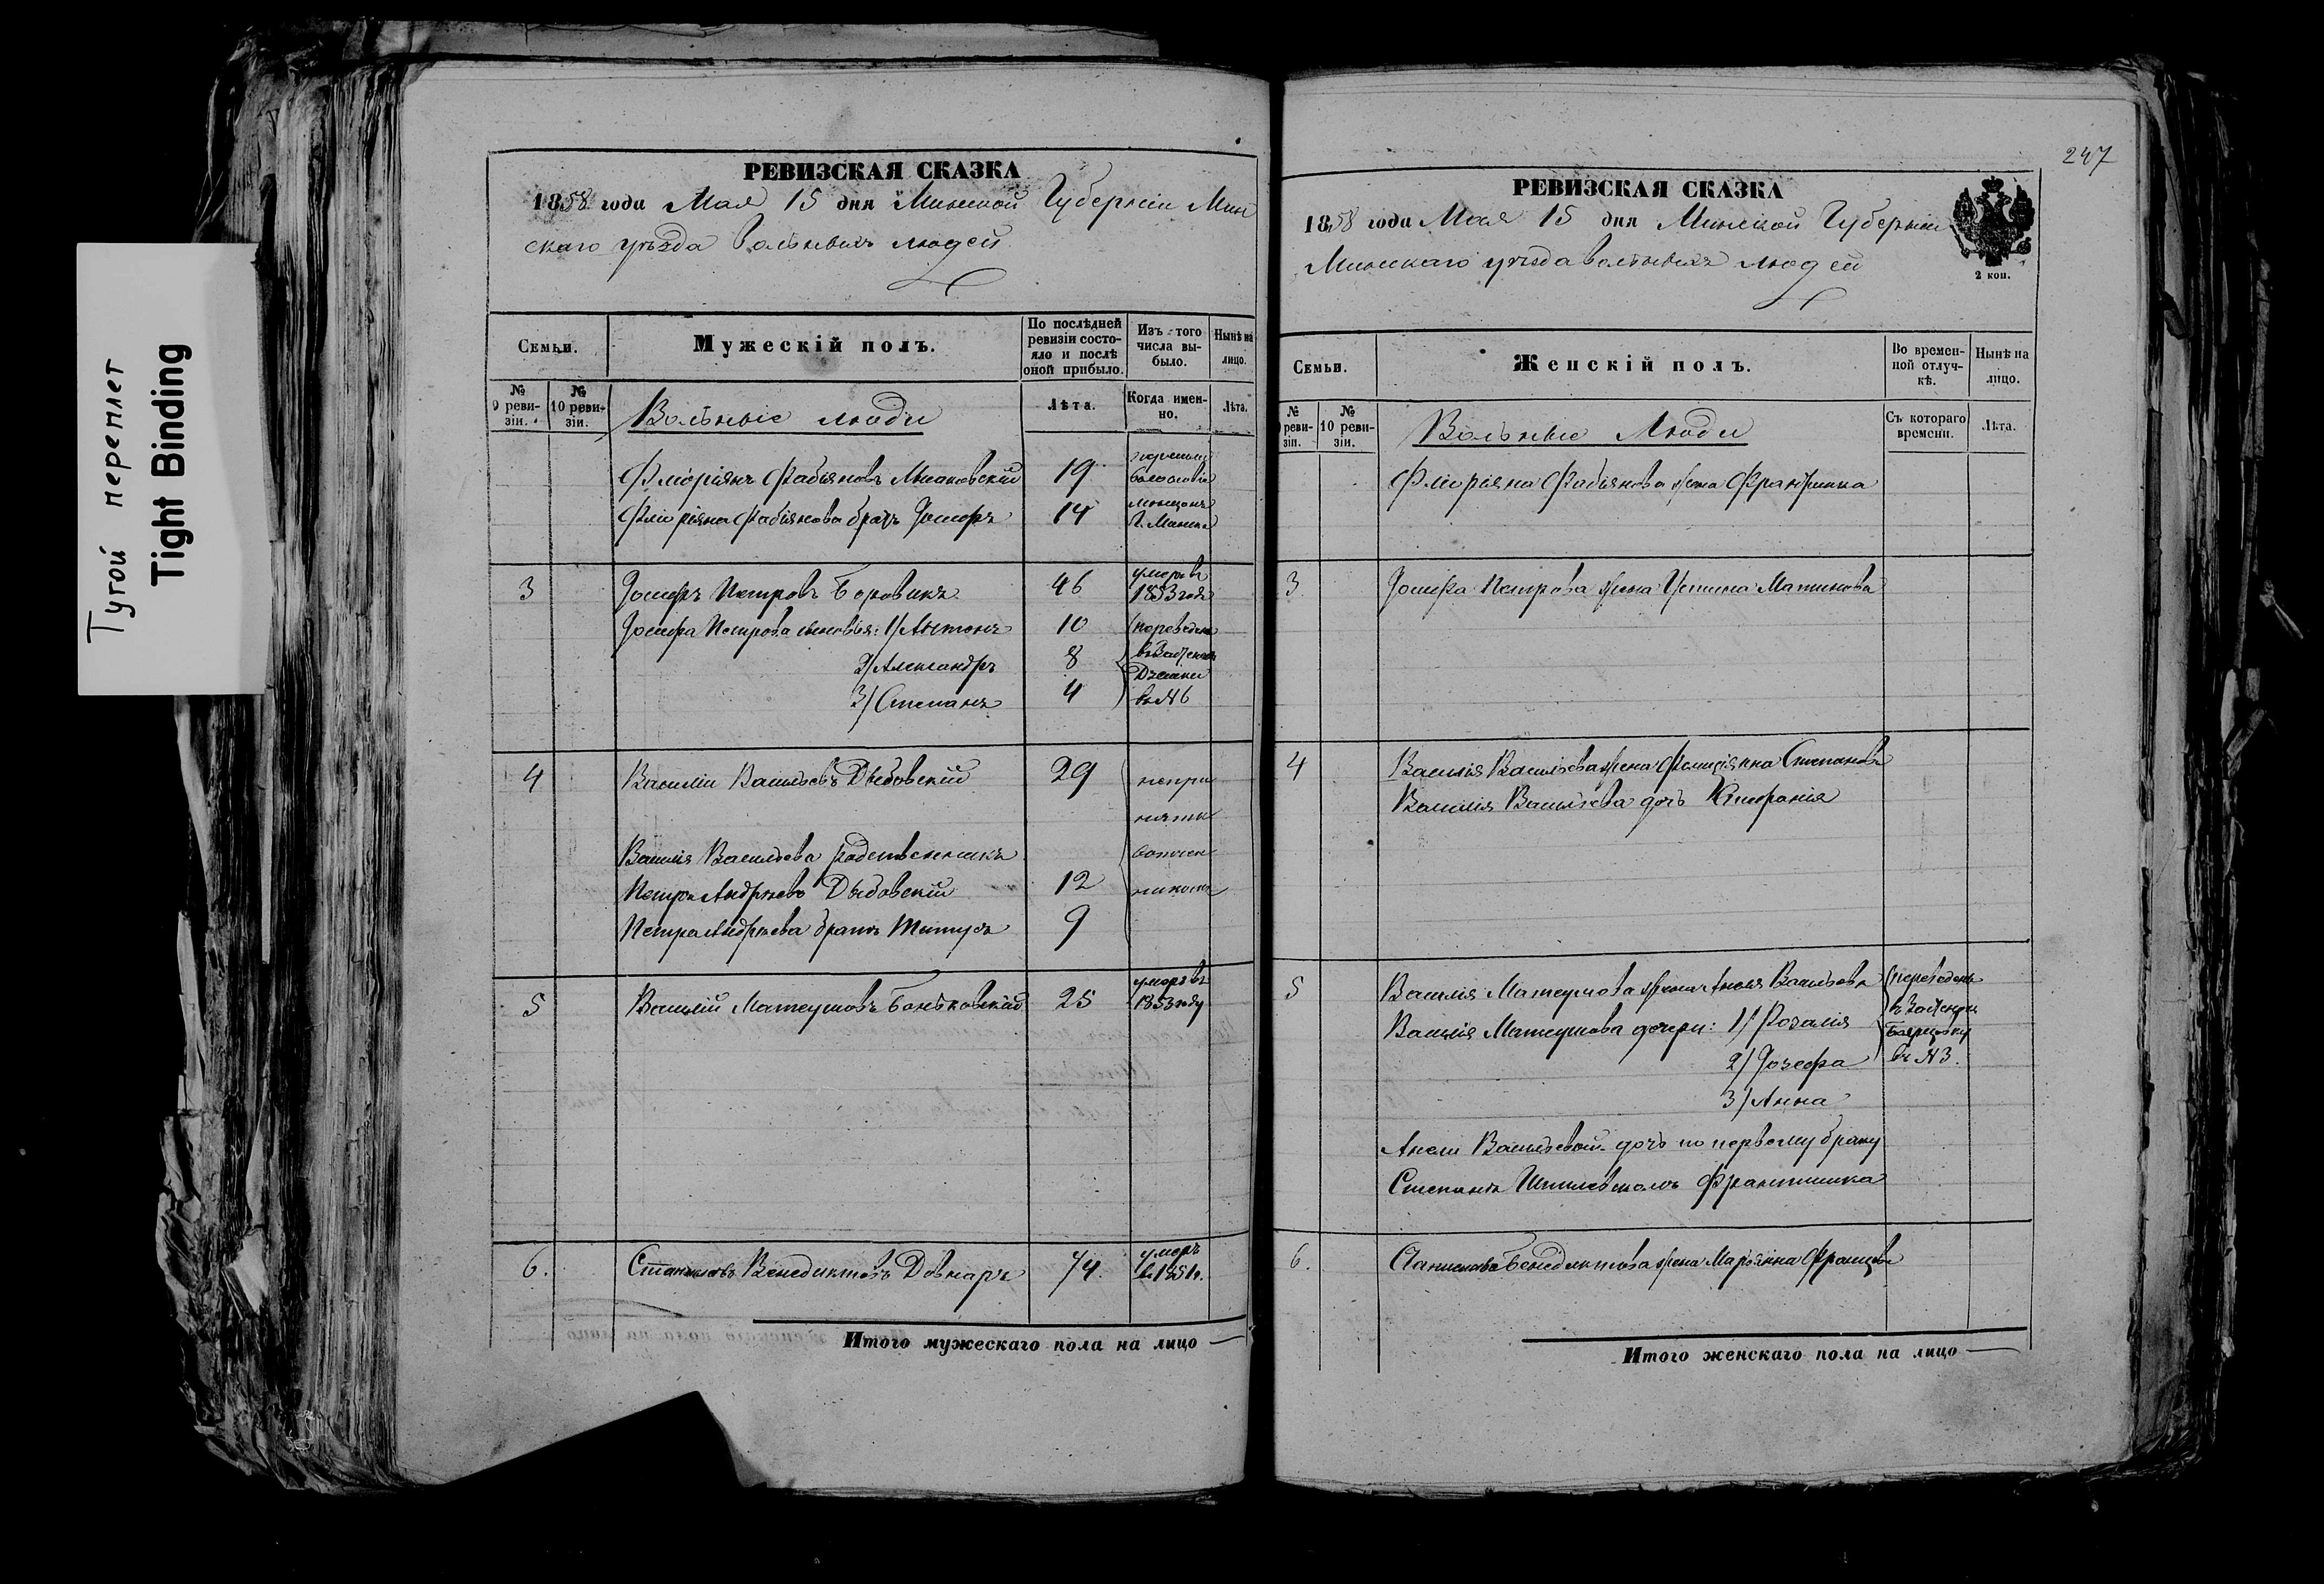 Тугой переплет
Tight Binding
РЕВИЗСКАЯ СКАЗКА
1858 года Мая 15 дня Минской Губернии Мин
скаго уѣзда вольныхъ людей
Семьи.
Мужескій полъ.
По послѣдней ревизіи состо-
яло и послѣ оной прибыло.
Изъ того числа вы-
было.
Нынѣ на лицо.
№ 9 реви-
зіи.
№ 10 реви-
зіи.
Вольные люди
Лѣта.
Когда имен-
но.
Лѣта.
Флоріянъ Фабіяновъ 19
Флоріяна Фабіянова братъ Іосифъ 14
3 Іосифъ Петровъ Боровикъ 46 умеръ въ 1853 годѣ
Іосифа Петрова сыновья: 1/ Антонъ 10
2/ Александръ 8
3/ Степанъ 4 въ № 6
4 Василій Васильевъ Дыбовскій 29
Василія Васильева родственникъ
Петръ Андреевъ Дыбовскій 12
Петра Андреева братъ Титусъ 9
5 Василій Матеушовъ Боньковскій 25 умеръ въ 1853 году
6. Станиславъ Венедиктовъ Довнаръ 74. умеръ въ 1851 г.
Итого мужескаго пола на лицо —
247
РЕВИЗСКАЯ СКАЗКА
1858 года Мая 15 дня Минской Губерніи
Минскаго уѣзда вольныхъ людей
2 коп.
Семьи.
Женскій полъ.
Во времен-
ной отлуч-
кѣ.
Нынѣ на лицо.
№ реви-
зіи.
№ 10 реви-
зіи.
Вольные Люди
Съ котораго времени.
Лѣта.
Флоріяна Фабіянова жена
3 Іосифа Петрова жена Устина
4 Василія Васильева жена Степанова
Василія Васильева дочь
5 Василія Матеушова жена Анеля Васильева
Василія Матеушова дочери: 1/ Розалія
2/ Іозефа въ № 3.
3/ Анна
Анели Васильевой дочь по первому браку
Франтишка
6. Станислава Бенедиктова жена Марьянна Францова
Итого женскаго пола на лицо —